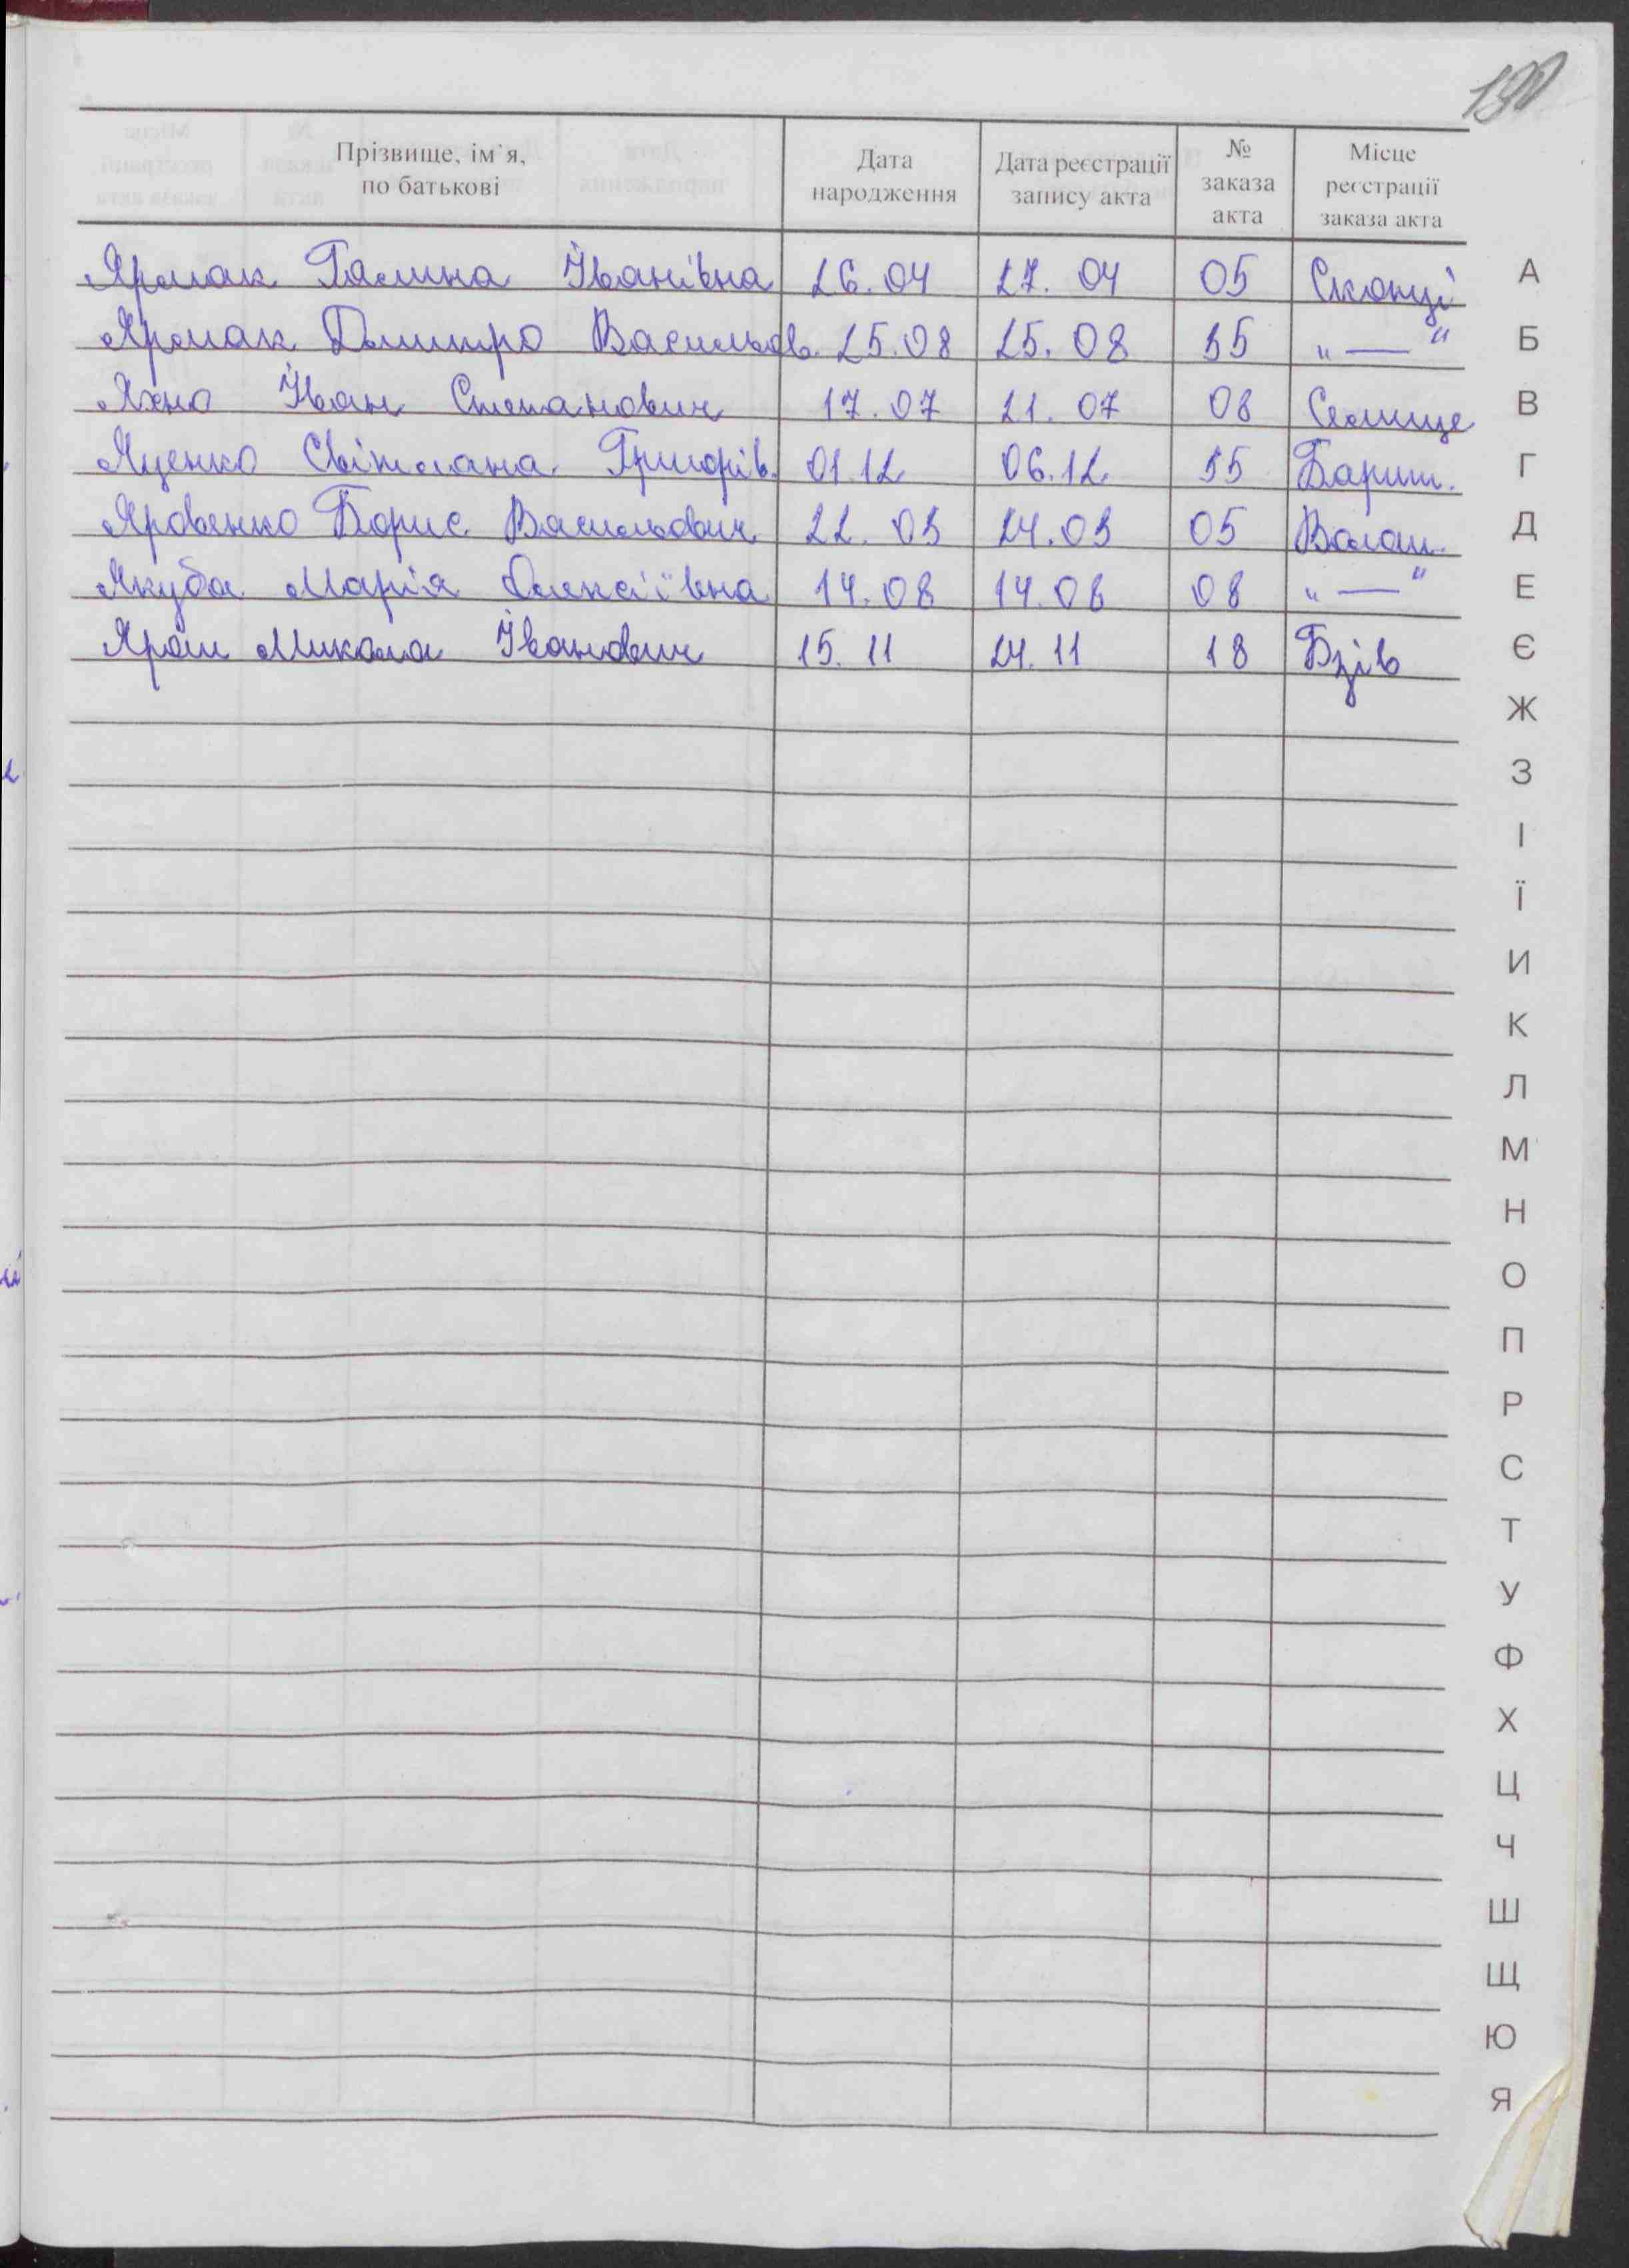 Прізвище, ім'я, по батькові | Дата народження | Дата реєстрації запису акта | № заказа акта | Місце реєстрації заказа акта
Ярмак Галина Іванівна 26.04 27.04 05 Скопці
Ярмак Дмитро Васильов. 25.08 25.08 15 "—"
Яхно Іван Степанович 17.07 21.07 08 Селище
Яценко Світлана Григорів. 01.12 06.12 Бариш.
Яровенко Борис Васильович 22.03 24.03 05 Волош.
Якуба Марія Олексіївна 14.08 14.08 08 "—"
Ярош Микола Іванович 15.11 24.11 18 Бзів
А
Б
В
Г
Д
Е
Є
Ж
З
І
Ї
И
К
Л
М
Н
О
П
Р
С
Т
У
Ф
Х
Ц
Ч
Ш
Щ
Ю
Я